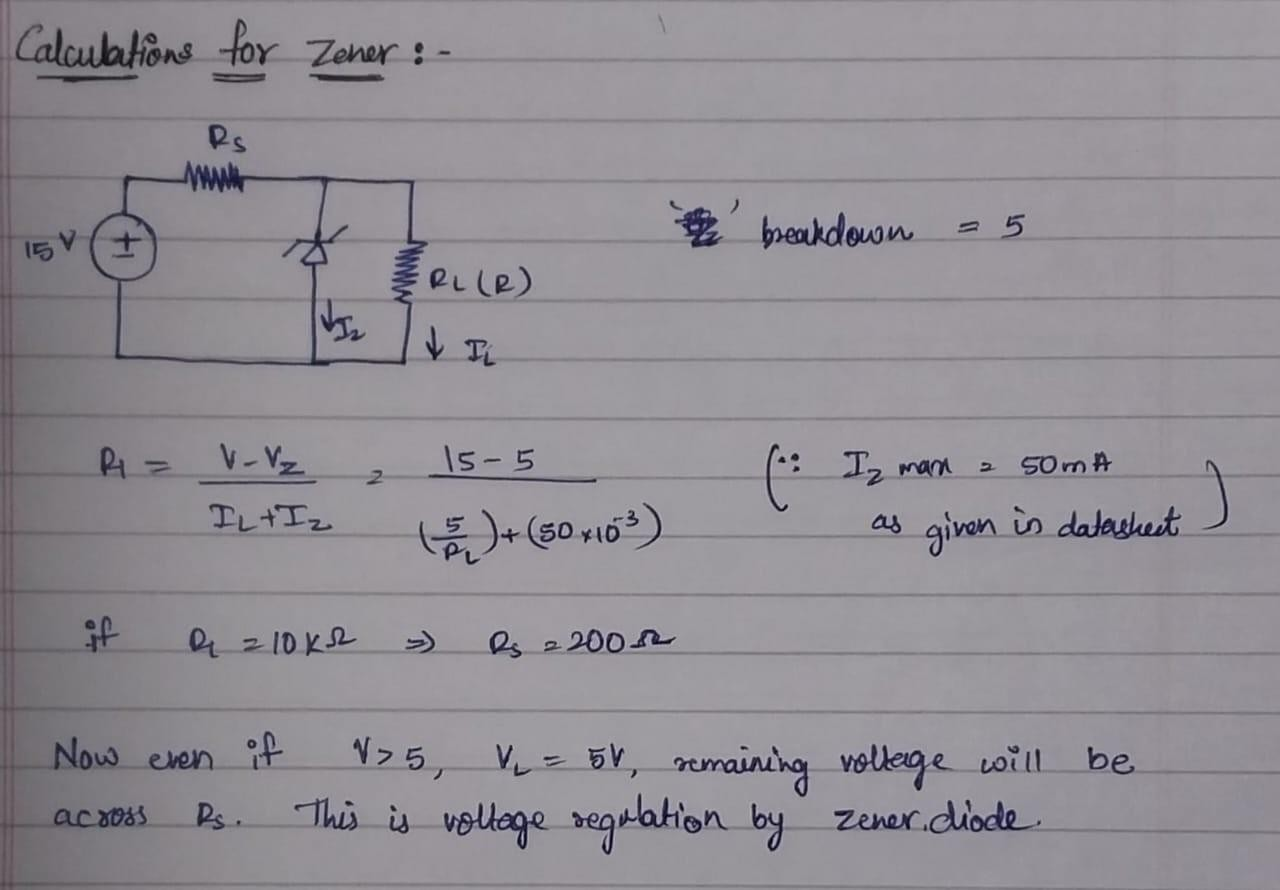 Calculations for Zener :-
Rs
15 V
RL (R)
Iz
IL
breakdown = 5
R1 = V-Vz / IL+Iz = 15-5 / (5/RL)+(50×10^-3) (∵ Iz max = 50mA
as given in datasheet)
if RL = 10KΩ ⇒ Rs = 200Ω
Now even if V>5, VL = 5V, remaining voltage will be
across Rs. This is voltage regulation by zener diode.